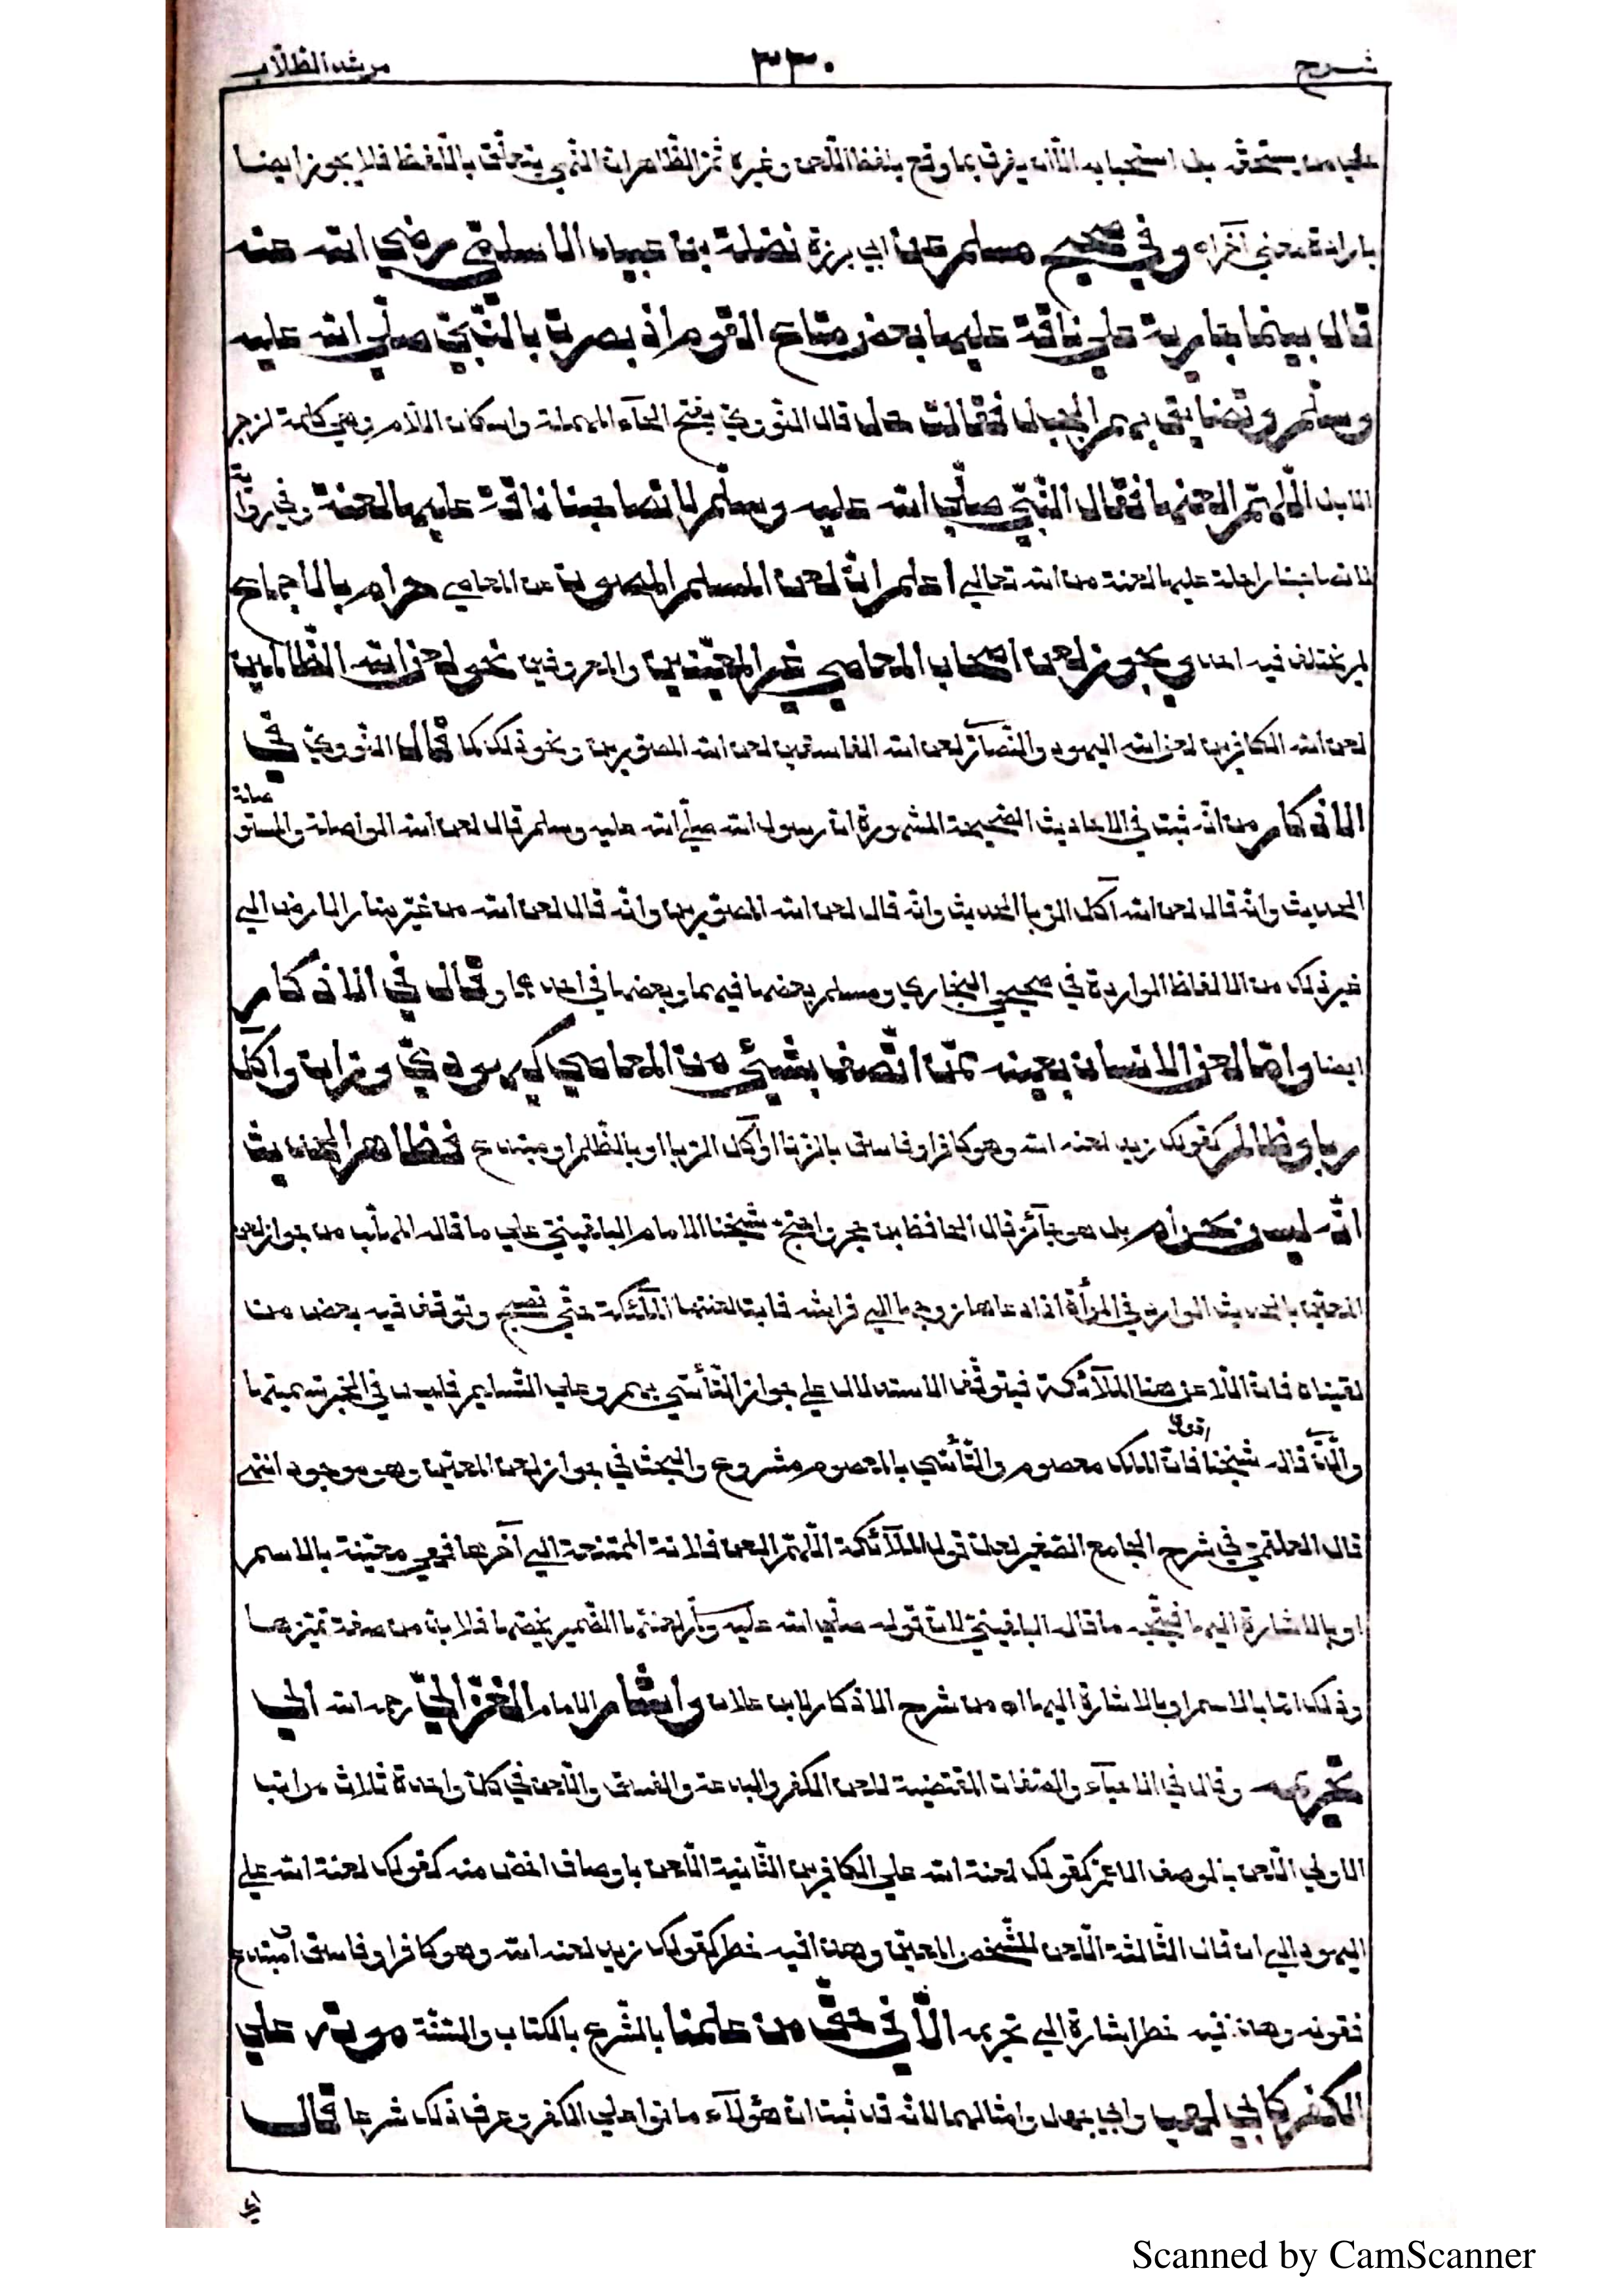 شرح ٣٣٠ مرشد الطلاب
على من يستحقه بل استحبابه الا ان يفرق بما وقع بلفظ اللعن وغيره ثم الظاهر ان النهي يتعلق باللفظ فلا يجوز ايضا
بارادة معنى آخر اه وفي صحيح مسلم عن ابي برزة نضلة بن عبيد الاسلمي رضي الله عنه
قال بينما جارية على ناقة عليها بعض متاع القوم اذ بصرت بالنبي صلى الله عليه
وسلم وتضايق بهم الجبل فقالت حل قال النووي بفتح الحاء المهملة واسكان اللام وهي كلمة لزجر
الابل اللهم العنها فقال النبي صلى الله عليه وسلم لا تصاحبنا ناقة عليها لعنة وفي رواية
لا تصاحبنا راحلة عليها لعنة من الله تعالى اعلم ان لعن المسلم المصون عن المعاصي حرام بالاجماع
لم يختلف فيه احد ويجوز لعن اصحاب المعاصي غير المعينين والمعروفين نحو لعن الله الظالمين
لعن الله الكافرين لعن الله اليهود والنصارى لعن الله الفاسقين لعن الله المصورين ونحو ذلك كما قال النووي في
الاذكار من انه ثبت في الاحاديث الصحيحة المشهورة ان رسول الله صلى الله عليه وسلم قال لعن الله الواصلة والمستوصلة
الحديث وانه قال لعن الله آكل الربا الحديث وانه قال لعن الله المصورين وانه قال لعن الله من غير منار الارض الى
غير ذلك من الالفاظ الواردة في صحيحي البخاري ومسلم بعضها فيهما وبعضها في احدهما وقال في الاذكار
ايضا واما لعن الانسان بعينه ممن اتصف بشيئ من المعاصي كيهودي وزان وآكل
ربا وظالم كقولك زيد لعنه الله وهو كافر او فاسق بالزنا او آكل الربا او بالظلم او مبتدع فظاهر الحديث
انه ليس بحرام بل هو جآئز قال الحافظ بن حجر واحتج شيخنا الامام البلقيني على ما قاله المهلب من جواز لعن
المعين بالحديث الوارد في المرأة اذا دعاها زوجها الى فراشه فابت لعنتها الملآئكة حتى تصبح وتوقف فيه بعض من
لقيناه فان اللاعن هنا الملآئكة فيتوقف الاستدلال على جواز التأسي بهم وعلى التسليم فليس في الخبر تسميتها
والذي قاله شيخنا اقوى فان الملك معصوم والتأسي بالمعصوم مشروع والبحث في جواز لعن المعين وهو موجود انتهى
قال العلقمي في شرح الجامع الصغير لعل قول الملآئكة اللهم العن فلانة الممتنعة الى آخرها فهي معينة بالاسم
او بالاشارة اليها فيتجه ما قاله البلقيني لان قوله صلى الله عليه وسلم لعنتها الضمير يخصها فلا بد من صفة تميزها
وذلك اما بالاسم او بالاشارة اليها اه من شرح الاذكار لابن علان واشار الامام الغزالي رحمه الله الى
تحريمه وقال في الاحيآء والصفات المقتضية للعن الكفر والبدعة والفسق واللعن في كل واحدة ثلاث مراتب
الاولى اللعن بالوصف الاعم كقولك لعنة الله على الكافرين الثانية اللعن باوصاف اخص منه كقولك لعنة الله على
اليهود الى ان قال الثالثة اللعن للشخص المعين وهذا فيه خطر كقولك زيد لعنه الله وهو كافر او فاسق او مبتدع
فقوله وهذا فيه خطر اشارة الى تحريمه الا في حق من علمنا بالشرع بالكتاب والسنة موته على
الكفر كابي لهب وابي جهل وامثالهما لانه قد ثبت ان هؤلآء ماتوا على الكفر وعرف ذلك شرعا قال
Scanned by CamScanner